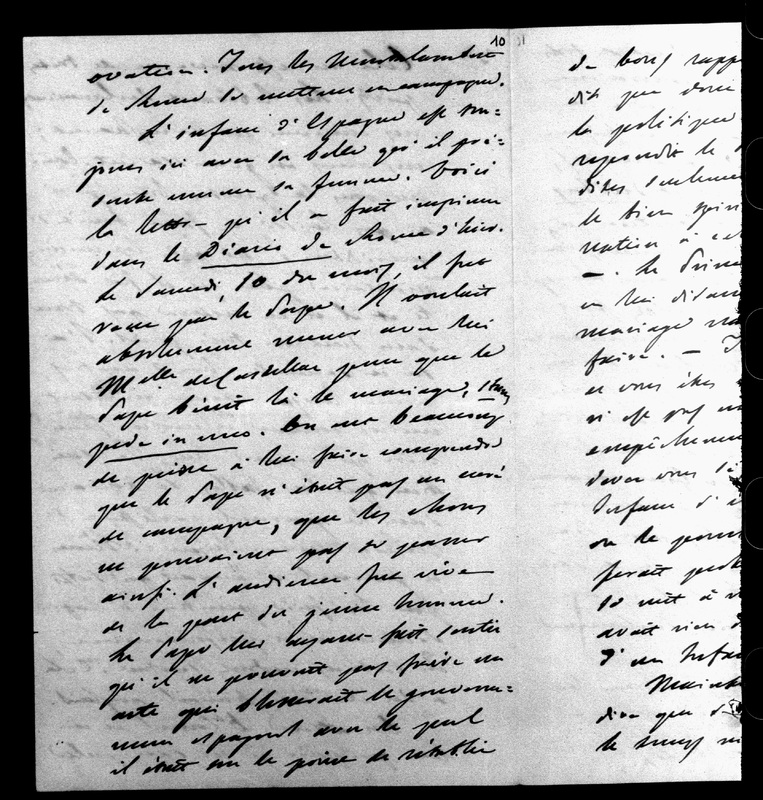 10
ovation. Tous les Montalembert
de Rome se mettent en campagne.
L'infant d'Espagne est tou=
jours ici avec sa belle qu'il pré=
sente comme sa femme. Voici
la lettre qu'il a fait imprimer
dans le Diario de Rome d'hier.
Le Samedi, 10 du mois, il fut
reçu par le Pape. Il voulait
absolument mener avec lui
Melle de Castella pour que le
Pape bénit là le mariage,
pede in uno. On eut beaucoup
de peine à lui faire comprendre
que le Pape n'était pas un curé
de campagne, que les choses
ne pouvaient pas se passer
ainsi. L'audience fut vive
de la part du jeune homme.
Le Pape lui ayant fait sentir
qu'il ne pouvait pas faire un
acte qui blesserait le gouverne=
ment espagnol avec lequel
il était sur le point de rétablir
de bons rapp
dit que
la politique
répondit le
dites seulemen
le bien
relation à
—. Le Prince
en lui disant
mariage
faire. —
ce vous êtes
n'est pas
empêchement
devez vous
Infant d'
ou le
ferait
10
avait rien
d'un Infan
Maint
dire que
le